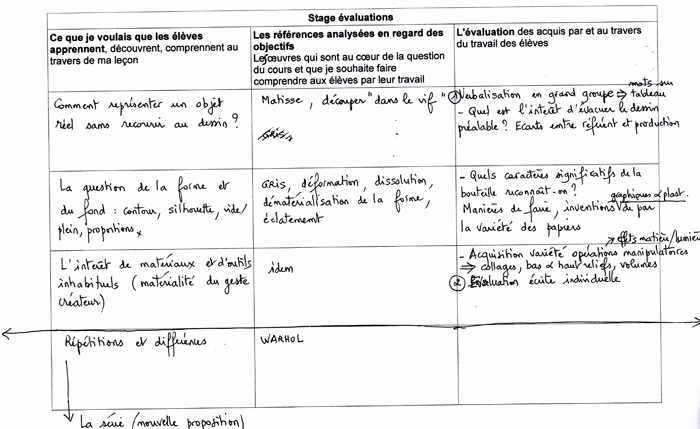 Stage évaluations
Ce que je voulais que les élèves
apprennent, découvrent, comprennent au
travers de ma leçon
Les références analysées en regard des
objectifs
Les œuvres qui sont au cœur de la question
du cours et que je souhaite faire
comprendre aux élèves par leur travail
L'évaluation des acquis par et au travers
du travail des élèves
Comment représenter un objet
réel sans recourir au dessin ?
Matisse, découper "dans le vif"
mots sur
① Verbalisation en grand groupe ⇒ tableau
- Quel est l'intérêt d'évacuer le dessin
préalable ? Ecarts entre référent et production
La question de la forme et
du fond : contour, silhouette, vide/
plein, proportions
GRIS, déformation, dissolution,
dématérialisation de la forme,
éclatement
- Quels caractères significatifs de la
bouteille reconnaît-on ?
graphiques & plast.
Manières de faire, inventions par
la variété des papiers
L'intérêt de matériaux et d'outils
inhabituels (matérialité du geste
créateur)
idem
→ effets matière/lumière
- Acquisition variété opérations manipulatoires
⇒ collages, bas & haut reliefs, volumes
② Evaluation écrite individuelle
Répétitions et différences
WARHOL
La série (nouvelle proposition)